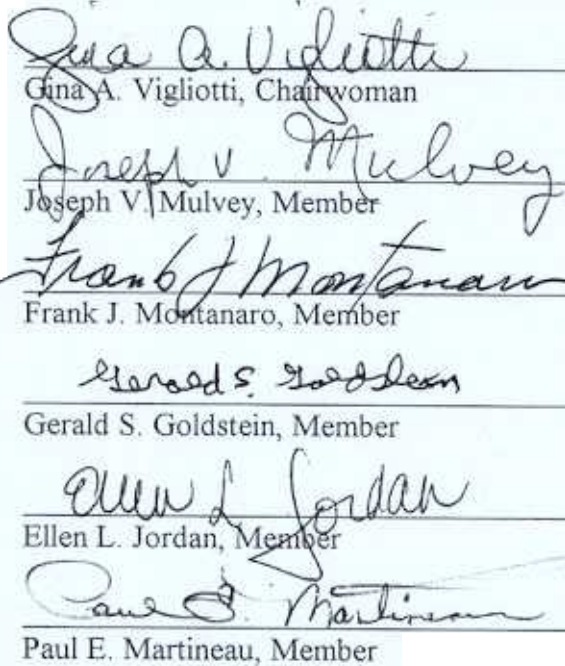 Gina A. Vigliotti
Gina A. Vigliotti, Chairwoman
Joseph V. Mulvey
Joseph V. Mulvey, Member
Frank J Montanaro
Frank J. Montanaro, Member
Gerald S. Goldstein
Gerald S. Goldstein, Member
Ellen L Jordan
Ellen L. Jordan, Member
Paul E. Martineau
Paul E. Martineau, Member